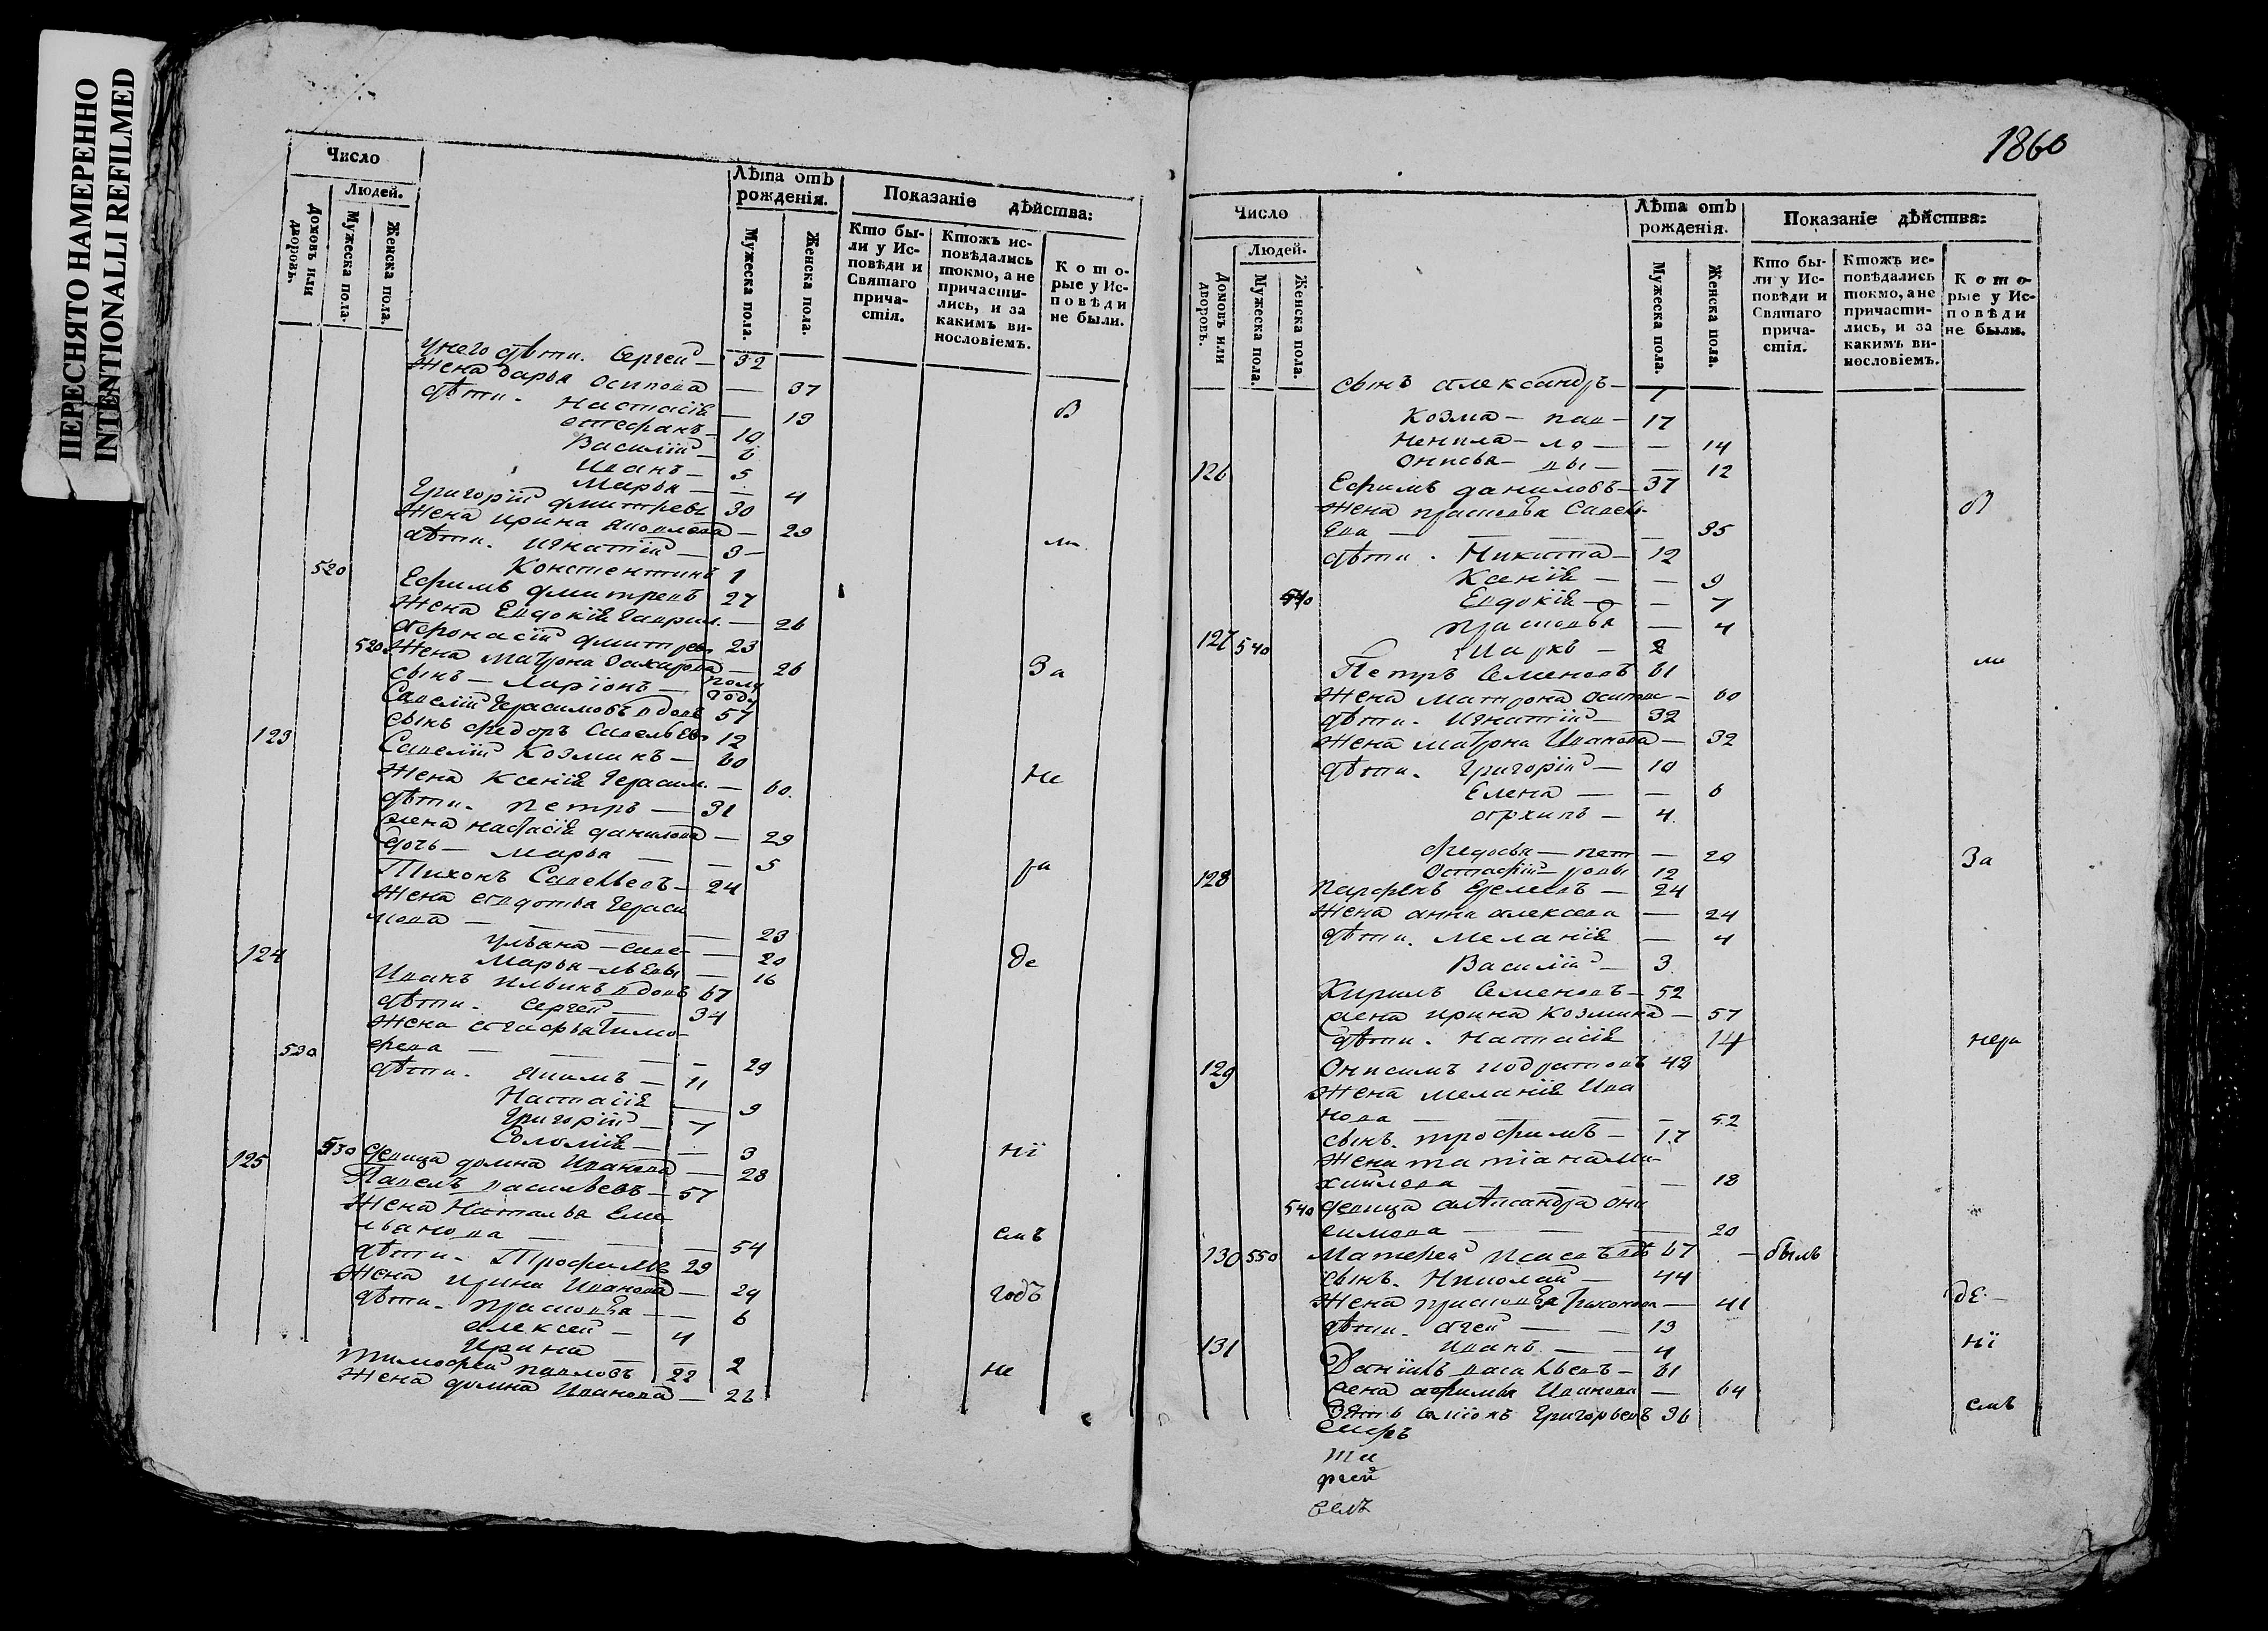 ПЕРЕСНЯТО НАМЕРЕННО
INTENTIONALLI REFILMED
Число
Людей.
Домовъ или дворовъ.
Мужеска пола.
Женска пола.
Лѣта отъ рожденія.
Мужеска пола.
Женска пола.
Показаніе дѣйства:
Кто бы-
ли у Ис-
повѣди и
Святаго
прича-
стія.
Ктожъ ис-
повѣдались
токмо, а не
причасти-
лись, и за
какимъ ви-
нословіемъ.
Кото-
рые у Ис-
повѣди
не были.
у него дѣти. Сергей — 32
Жена дарья Осипова — 37
дѣти. Настасія — 19 в
стефанъ — 10
Василій — 6
Иванъ — 5
Марья — — 4
Григорій дмитревъ 30
Жена ирина Яковлева — 29
дѣти. Игнатій — 3 — ли
520 Констентинъ 1
Ефимъ дмитревъ 27
Жена Евдокія Гаврил. — 26
Афонасій дмитрев 23
520 Жена Матрона Захарова — 26 За
сынъ — Ларіонъ — полу году
Савелій Герасимовъ вдовъ 57
сынъ федоръ Савельев 12
123 Савелій Козминъ — 60
Жена Ксенія Герасим. — 60. не
дѣти. петръ — 31
жена настасія данилова — 29
дочь — Марья — — 5
Тихонъ Савельевъ — 24 ра
Жена евдотья Гераси
мова — — — 23
Ульяна — саве — 20
Марья — льевы — 16 де
124 Иванъ Ильинъ вдовъ 67
дѣти. Сергей — 34
Жена агафья Тимо-
феева — — — 29
530 дѣти. Якимъ — 11
Настасія — 9
Григорій — 7
Соломія — — 3 ні
530 девица домна Иванова — 28
125 Павелъ васильевъ — 57
Жена Наталья Еме-
льянова — — 54 емъ
дѣти. Трофимъ 29
Жена ирина Иванова — 29
дѣти. прасковья — 6 годъ
алексей — 4
Ирина — 2
тимофей павловъ 22 не
Жена домна Иванова — 26
1860
Число
Людей.
Домовъ или дворовъ.
Мужеска пола.
Женска пола.
Лѣта отъ рожденія.
Мужеска пола.
Женска пола.
Показаніе дѣйства:
Кто бы-
ли у Ис-
повѣди и
Святаго
прича-
стія.
Ктожъ ис-
повѣдались
токмо, а не
причасти-
лись, и за
какимъ ви-
нословіемъ.
Кото-
рые у Ис-
повѣди
не были.
сынъ александръ — 1
Козма — пав — 17
Ненила — ло — — 14
Онисья — вы — — 12
126 Ефимъ даниловъ — 37
Жена прасковья Савель- в
ева — — — 35
дѣти. Никита — 12
Ксенія — — 9
540 Евдокія — — 7
прасковья — 4
540 Марко — 2
127 Петръ Семеновъ 61 ли
Жена матрона Осипов — 60
дѣти. Игнатій — 32
Жена матрона Иванова — 32
дѣти. Григорій — 10
Елена — — 6
архипъ — 4.
федосья — пет — 20
Остафій — ровы 12 За
128 парфенъ Еремевъ — 24
Жена анна алексева — 24
дѣти. Меланія — 4
Василій — 3.
Кирилъ Семеновъ — 52
жена ирина Козмина — 57
дѣти. Настасія 14 нера
129 Онисимъ 48
Жена меланія Ива
нова — — — 52
сынъ. трофимъ — 17
Жена татіана Ми-
хайлова — — 18
540 девица алѣксандра они
симова — — 20
130 550 Матфей 67 — былъ
сынъ. Николай — 44
Жена прасковья Тихонова — 41 де —
дѣти. агей — — 13
Иванъ — — 4 ні
131 Даніилъ васильевъ — 61
жена афимья Иванова — 64
Зять Григорьевъ 36 емъ